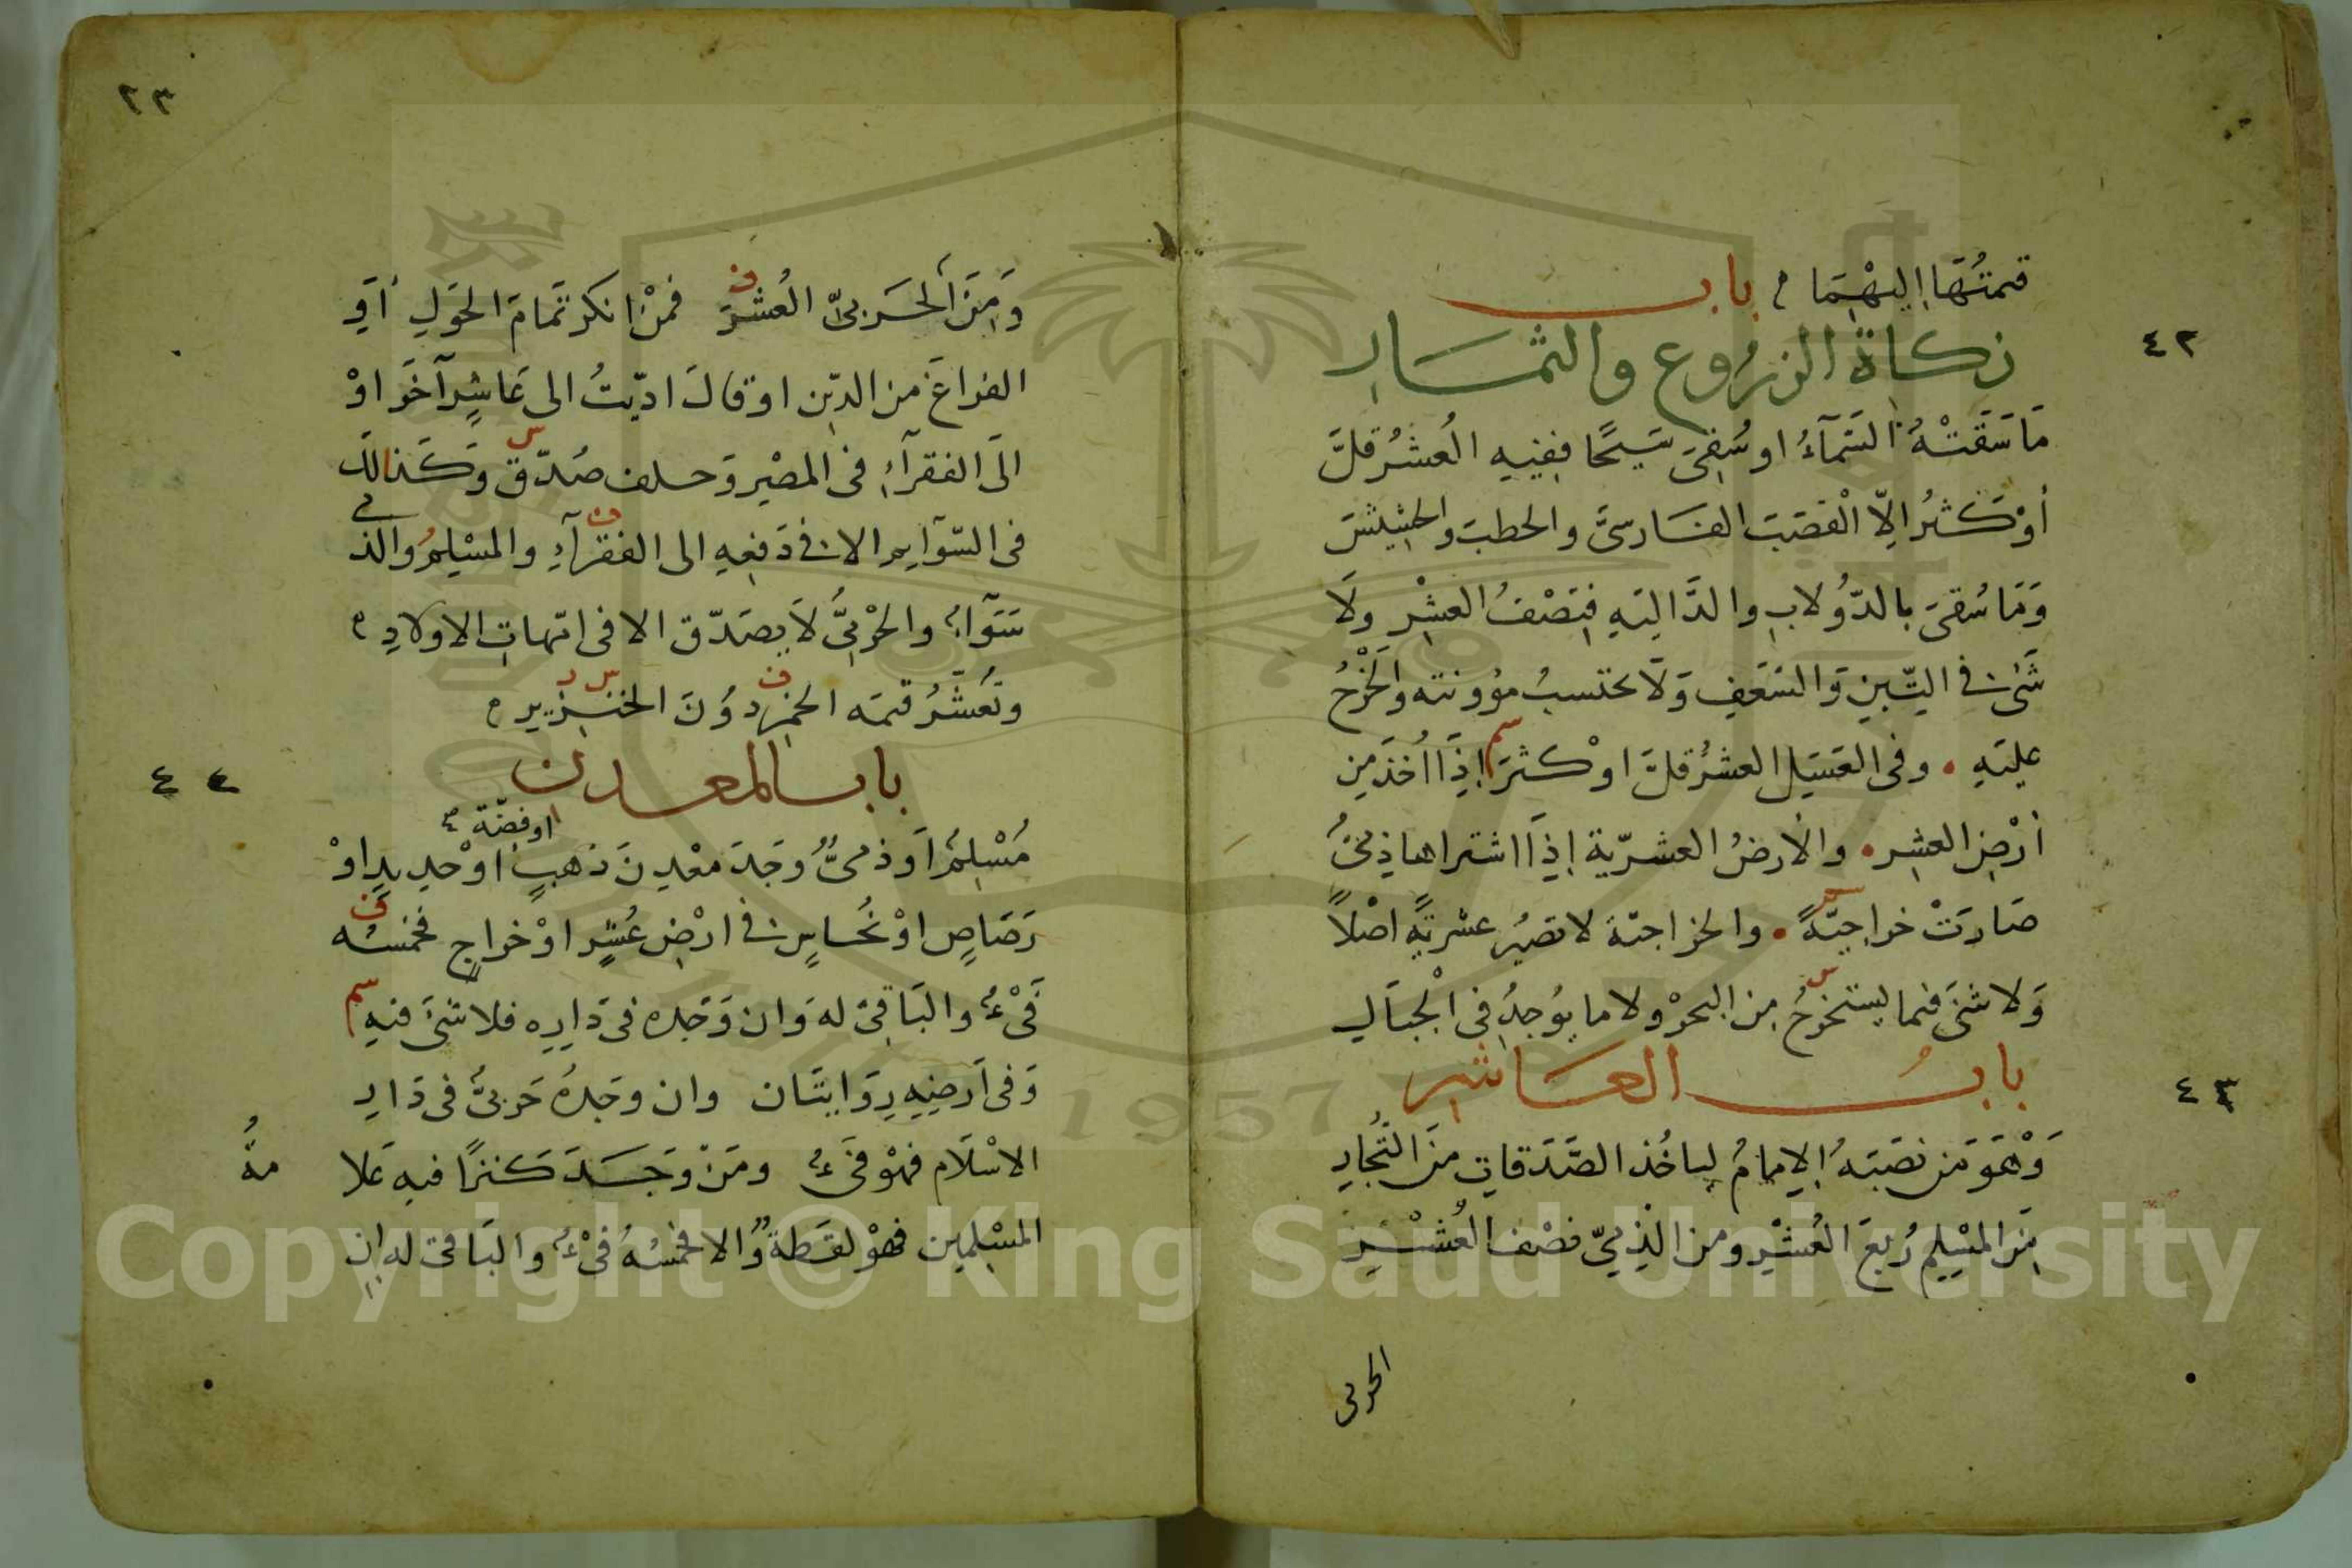 قيمتُهَا إليهْمَا م باب
زكاة الزرُوع والثمَار
مَا سَقَتْهُ السَّمَآءُ او سُقِىَ سَيحًا فِفيهِ العُشرُ قلَّ
أوْ كَثرُ الِاّ القصَبَ الفَارسىَّ والحطبَ والحشِيشَ
وَمَا سُقىَ بالدّوُلابِ والدَّاليَهِ فنِصْفُ العشِْر ولَا
شَىْء فى التِّبنِ وَالسَعَفِ وَلَا يحتسبُ مؤونته والخَرْجُ
عليَهِ • وفى العَسَل العشرُ قلَّ اوْ كثرَ إذَا اُخذَ مِن
أرْضِ العشِر • والأرضُ العشريّة إذَا اشتراها ذمىُّ
صَارَتْ خراجيّةً • والخراجيّة لا تصيُر عشريّةً اصْلاً
وَلا شَىَ فيما يستخرجُ مِن البحرْ ولا ما يوُجدُ فى الْجبَالِ
بابُ العَاشِر
وَهْوَ مَن نصَبَهُ الإمامُ لياخُذ الصَّدَقاتِ منَ التُجارِ
مِنَ المسْلِمِ رُبعَ العُشْرِ ومن الذِمىّ نصْف العُشْرِ
الحربى
٤٢
٤٣
٢٣
وَمِنَ الحَربىّ العُشرَ فمنْ انكر تمَامَ الحَوَلِ أوَ
الفراغَ من الدّيِن او قالَ ادّيتُ الى عَاشِرٍ آخَرَ اوْ
الَى الفقرآءِ فى المصْرِ وَحلف صُدّق وَكَذالكَ
فى السّوَآيم الا فى دَفعِهِ الى الفقرآءِ والمسْلِمُ والذمى
سَوَآءٌ والحرْبىُّ لَا يصَدّق الا فى امّهاتِ الاولادِ ه
وتُعَشَّرُ قيمَه الخمِر دوُنَ الخنزير ه
باب المعدن
مُسْلِمٌ أوَ ذمىٌّ وجَدَ معْدِنَ ذهبٍ او فضّة اوْحديدٍ اوْ
رَصَاصٍ اوْ نُحاسٍ فى ارْضِ عُشرٍ اوْ خراجٍ فخمسُه
فَىْءٌ والبَاقىْ له وَان وَجَده فى دَارِهِ فلا شىَ فيهِ
وَفى اَرضِهِ رِوَايتَان وان وجَدهُ حَربىٌّ فى دَارِ
الاسْلَام فهوْ فَىْءٌ ومَنْ وَجَدَ كَنزًا فيهِ عَلا
مةُ
المسْلِمين فهْو لقَطةٌ وُالا فخمسُهُ فىْءٌ والبَاقى له ان
٤٤